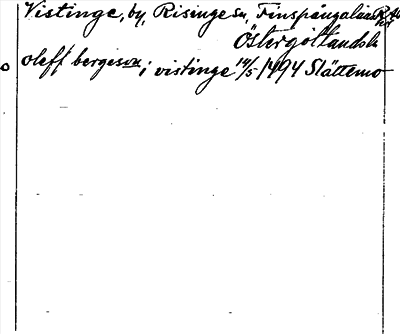 Vistinge, by, Risinge sn, Finspångaläns
Östergötlands l
oleff bergesson i vistinge 14/5 1494 Slättemo